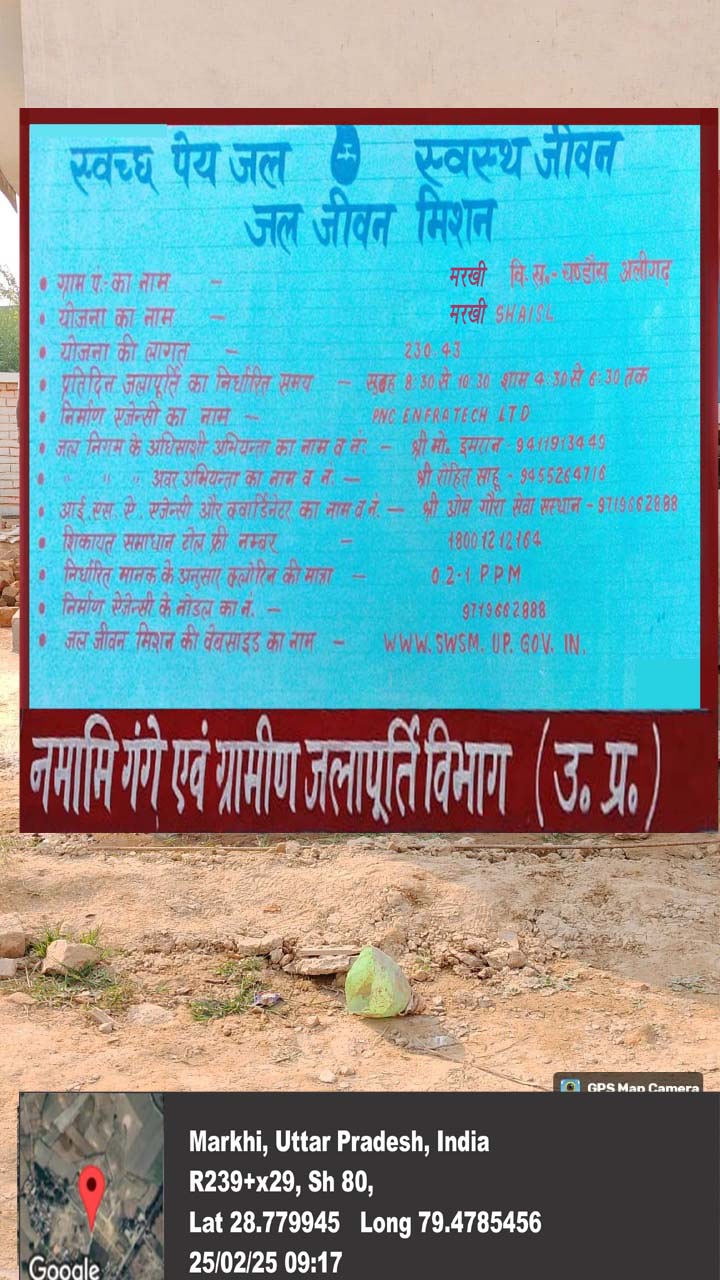 स्वच्छ पेय जल स्वस्थ जीवन
जल जीवन मिशन
• ग्राम पं.-का नाम - मरखी वि.ख.-चण्डौस अलीगढ़
• योजना का नाम - मरखी SHAISL
• योजना की लागत - 230.43
• प्रतिदिन जलापूर्ति का निर्धारित समय - सुबह 8:30 से 10:30 शाम 4:30 से 6:30 तक
• निर्माण एजेन्सी का नाम - PNC ENFRATECH LTD
• जल निगम के अधिसाशी अभियन्ता का नाम व नं. - श्री मो. इमरान - 9411913449
• " " " अवर अभियन्ता का नाम व नं. - श्री रोहित साहू - 9455264716
• आई.एस.ए. एजेन्सी और क्वार्डिनेटर का नाम व नं. - श्री ओम गौरा सेवा संस्थान - 9719662888
• शिकायत समाधान टोल फ्री नम्बर - 18001212164
• निर्धारित मानक के अनुसार क्लोरिन की मात्रा - 0.2-1 PPM
• निर्माण ऐजेन्सी के नोडल का नं. - 9719662888
• जल जीवन मिशन की वेबसाइड का नाम - WWW.SWSM.UP.GOV.IN.
नमामि गंगे एवं ग्रामीण जलापूर्ति विभाग (उ॰ प्र॰)
GPS Map Camera
Markhi, Uttar Pradesh, India
R239+x29, Sh 80,
Lat 28.779945 Long 79.4785456
25/02/25 09:17
Google